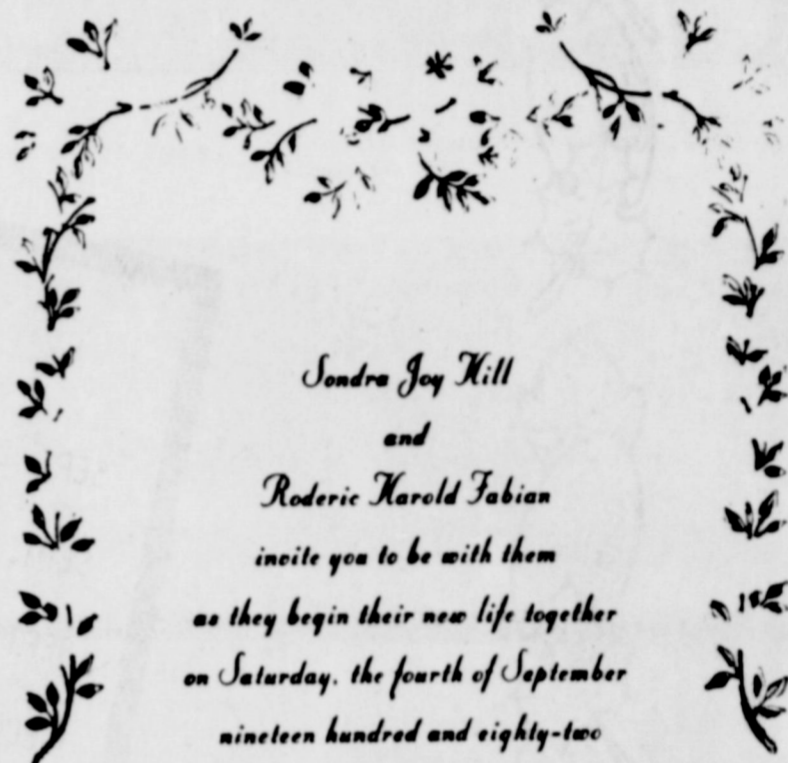 Sondra Joy Hill
and
Roderic Harold Fabian
invite you to be with them
as they begin their new life together
on Saturday, the fourth of September
nineteen hundred and eighty-two